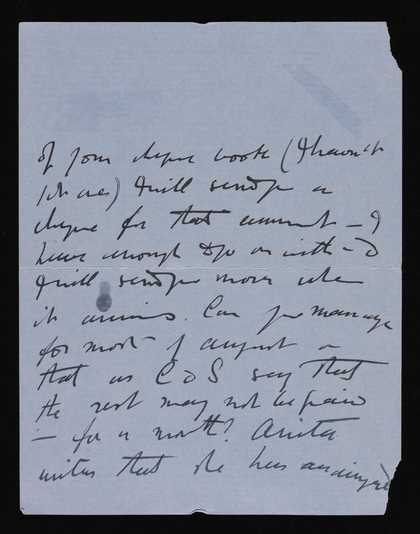 of your cheque book (I haven't
 ) I will send you a
cheque for that amount – I
have enough to go on with – &
I will send you more when
it arrives. Can you manage
for most of August on
that as C & S say that
the rest may not be paid
– for a month? Anita
writes that she has arranged